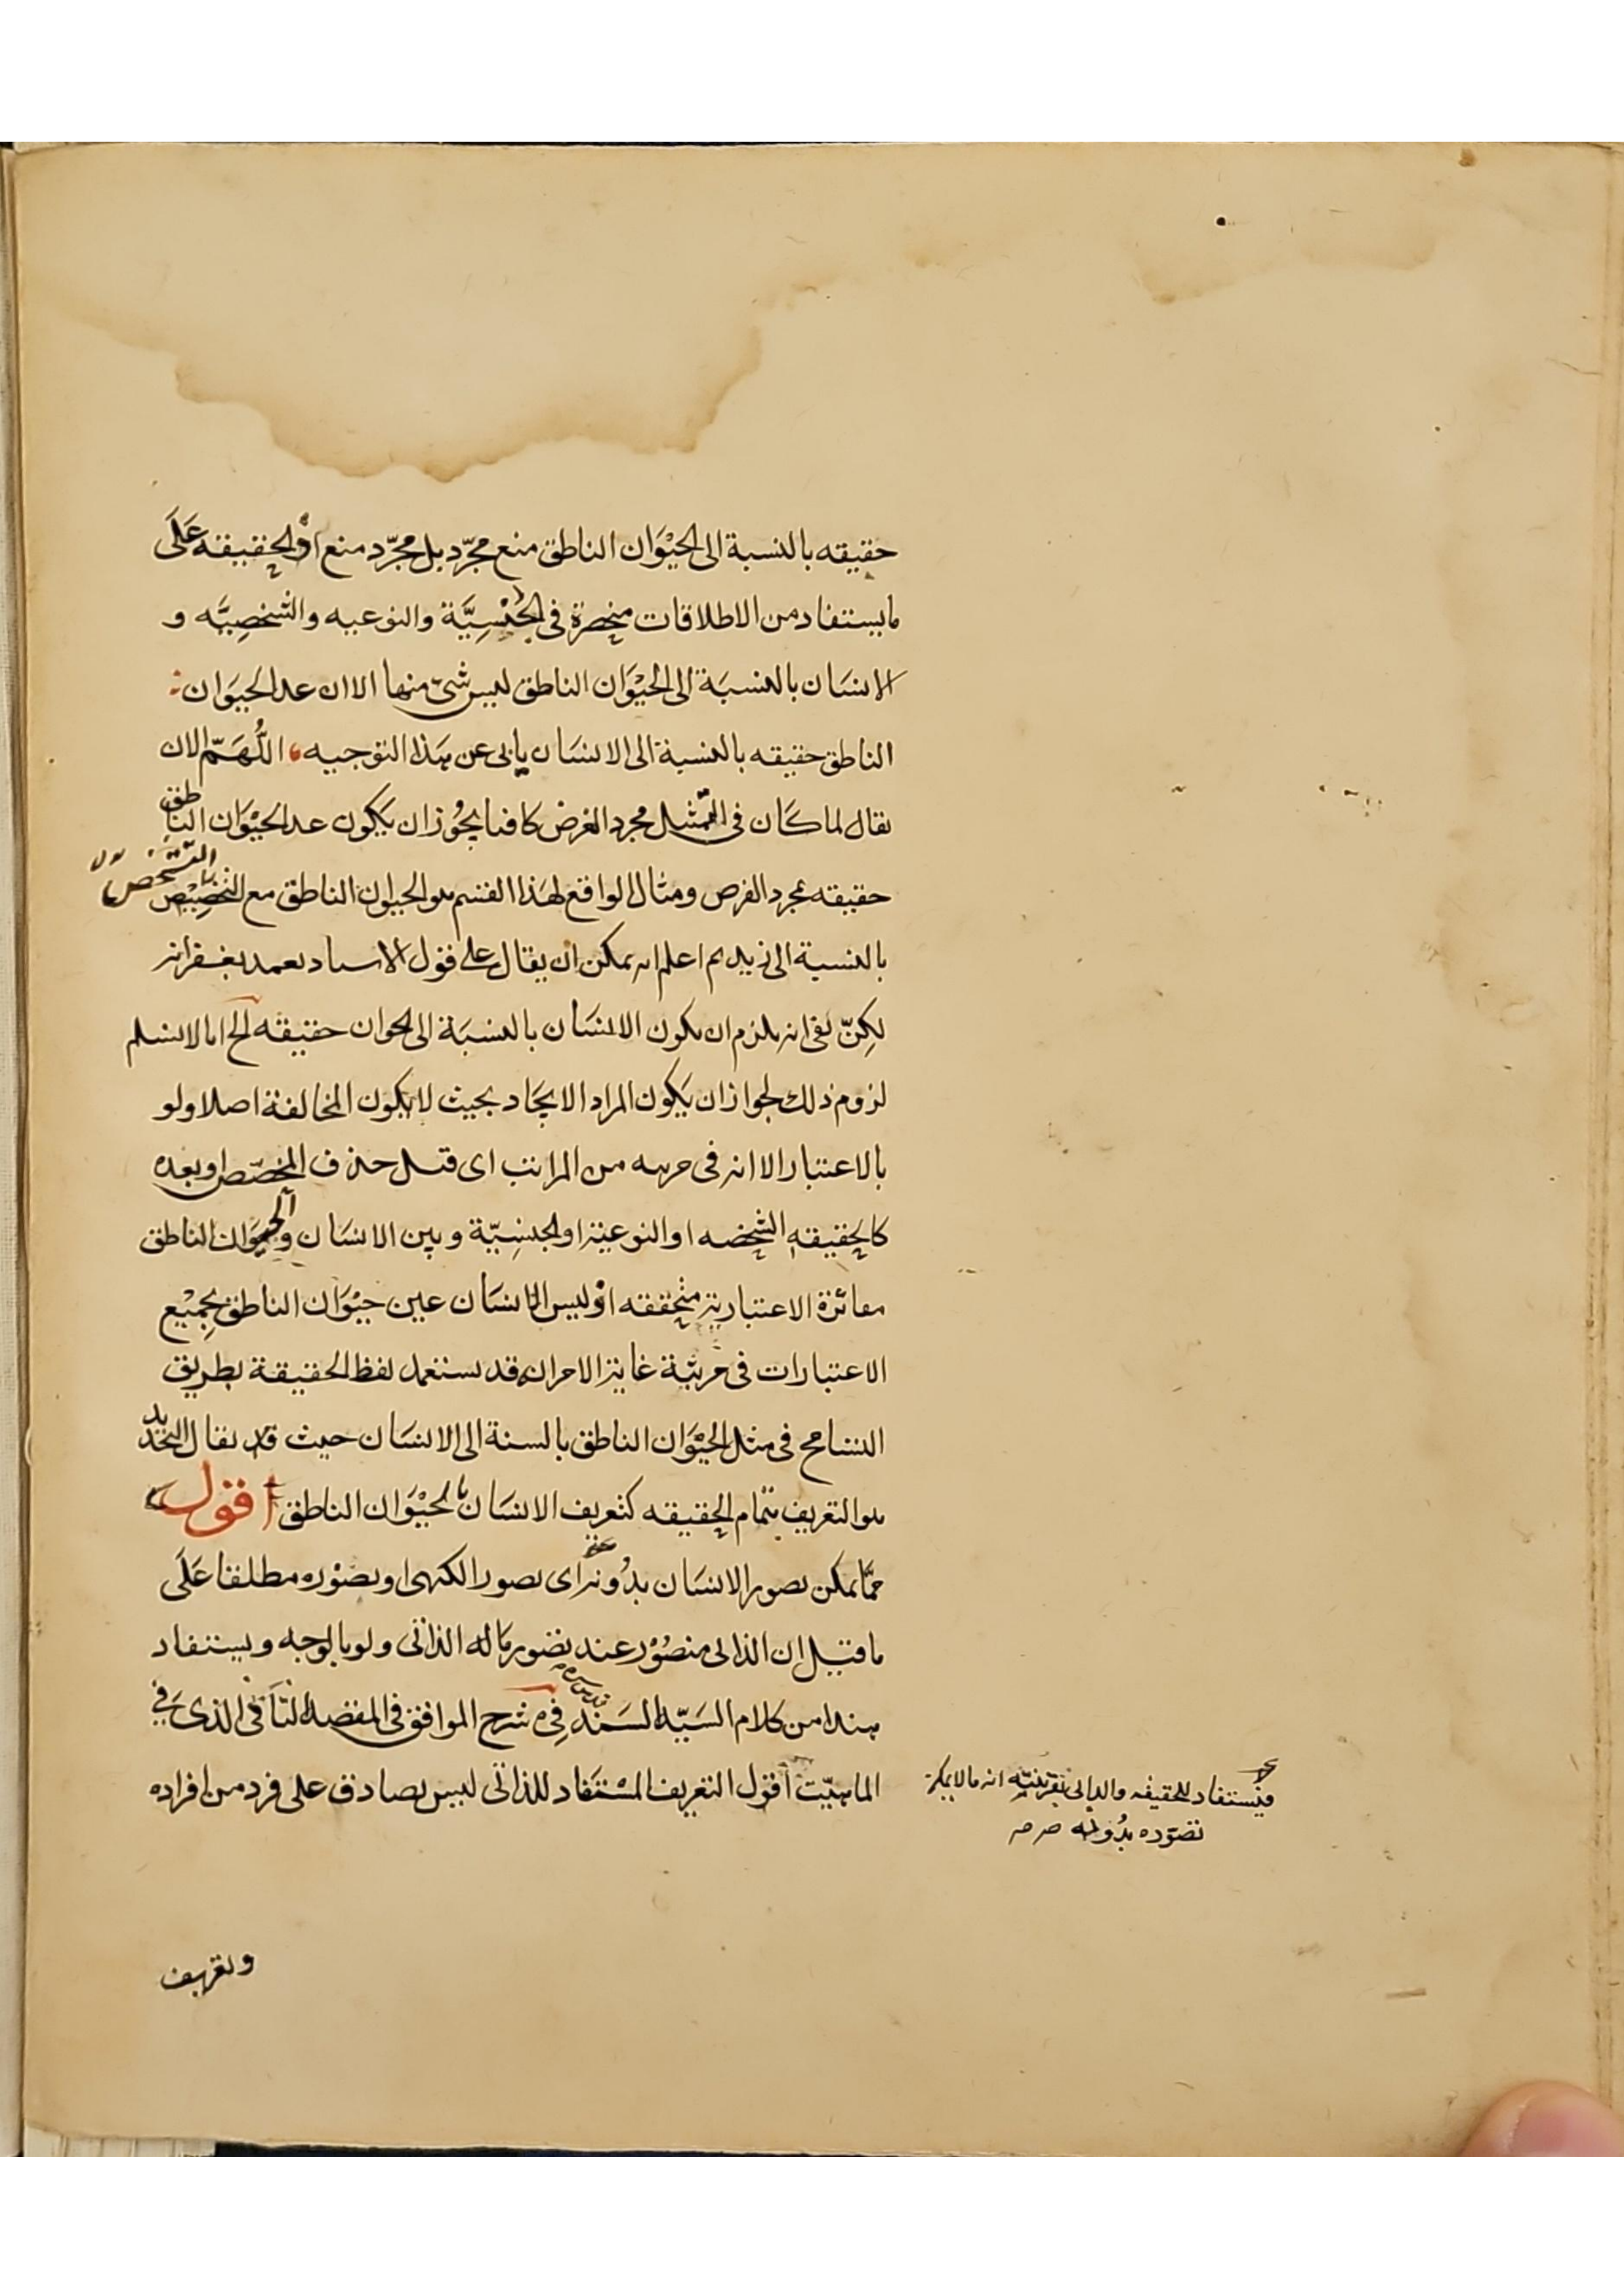 حقيقه بالنسبة الى الحيْوَان الناطق منع مجرّد بل مجرّد منع اذ الحقيقه عَلَى
ما يستفاد من الاطلاقات منحصرة فى الجِنْسِيَّة والنوعيه والشخصِيَّه و
الانسَان بالنسبَة الى الحيْوَان الناطق ليس شئ منها الا ان عد الحيوَان
الناطق حقيقه بالنسبة الى الانسَان يابى عن هذا التوجيه اللّٰهَمّ الا ان
يقال لما كَان فى التمثيل مجرد الفرض كافيا يجُوز ان يكون عد الحيْوَان الناطق
حقيقه بمجرد الفرض ومثال الواقع لهَذا القسم هو الحيوان الناطق مع التشخص
بالنسبة الى زيد ثم اعلم انه يمكن ان يقال على قول الاستاد
لكِنّ بقى انه يلزم ان يكون الانسَان بالنسبَة الى الحيوان حقيقه الخ انا لا نسلم
لزوم ذلك لجواز ان يَكون المراد الاتحَاد بحيث لا يكون المخالفة اصلا ولو
بالاعتبار الا انه فى مرتبه من المراتب اى قبل حذف المخصّص او بعده
كالحقيقه الشخصه او النوعية او الجنسِيّة وبين الانسَان والحيوَان الناطق
مغائرة الاعتبارية متحققه اذ ليس الانسَان عين حيْوَان الناطق بجميْع
الاعتبارات فى مرتبة غاية الامر انه قد يستعمل لفظ الحقيقة بطريق
التسامح فى مثل الحيْوَان الناطق بالنسبة الى الانسَان حيث قد يقال التحديد
هو التعريف بتمام الحقيقه كتعريف الانسَان بالحيْوَان الناطق اقول
ممّا يمكن تصور الانسَان بدُونه اى تصور الكنهى او تصوْره مطلقا عَلَى
ما قيل ان الذاتى متصُوْر عند تصور مَا له الذاتى ولو بالوجه ويستفاد
هذا من كلام السَيّد السَند فِى شرح المواقف فى المقصد الثَانى الذى فِي
الماهيّت اقول التعريف المسْتفاد للذاتى ليس بصادق على فرد من افراده
فيستفاد للحقيقه والذاتى تعريفيه انه ما لا يمكن
تصوّره بدُونه صح صح
وتعريف